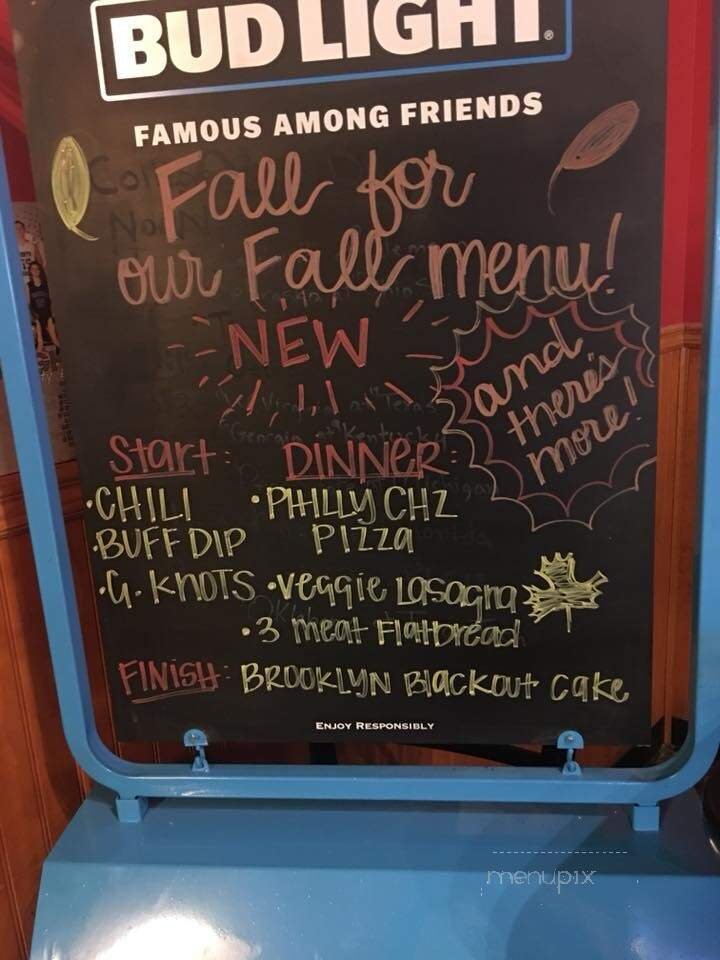 BUD LIGHT®
FAMOUS AMONG FRIENDS
Fall for
our Fall menu!
NEW
and
there's
more!
Start:
·CHILI
·BUFF DIP
·G. KNOTS
DINNER:
·PHILLY CHZ
PIZZA
·veggie Lasagna
·3 meat Flatbread
FINISH: BROOKLYN Blackout cake
ENJOY RESPONSIBLY
menupix